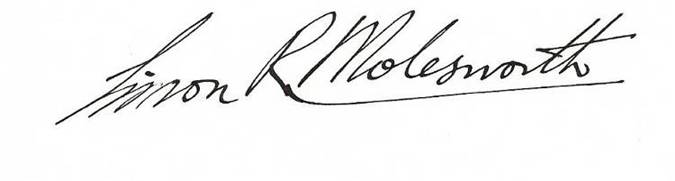 Simon R Molesworth